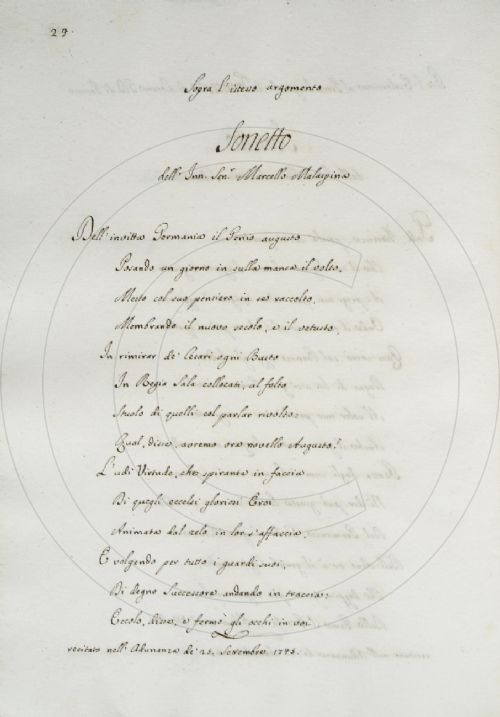 29.
Sopra l'istesso argomento
Sonetto
dell' Inn. Sen.r Marcello Malaspina
Dell'invitta Germania il Genio augusto
Posando un giorno in sulla manca il volto,
Mesto col suo pensiero in se raccolto,
Membrando il nuovo secolo, e il vetusto,
In rimirar de' Cesari ogni Busto
In Regia Sala collocati, al folto
Stuolo di quelli col parlar rivolto:
Qual, disse, avremo ora novello Augusto?
L'udì Virtude, che spirante in faccia
Di quegli eccelsi gloriosi Eroi
Animata dal zelo in lor s'affaccia.
E volgendo per tutto i guardi suoi,
Di degno Successore andando in traccia:
Eccolo, disse, e fermò gli occhi in voi
recitato nell'Adunanza de' 25. Settembre 1745.